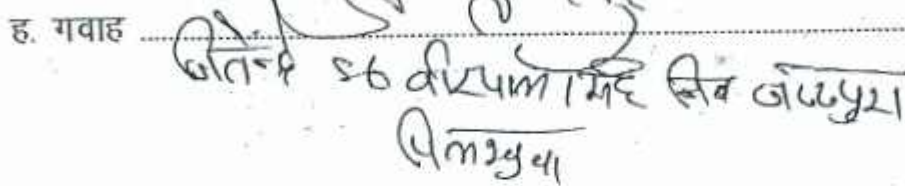 ह. गवाह ........................................
जितेन्द्र S/o वीरपाल सिंह नि० जटपुरा
पिलखुवा